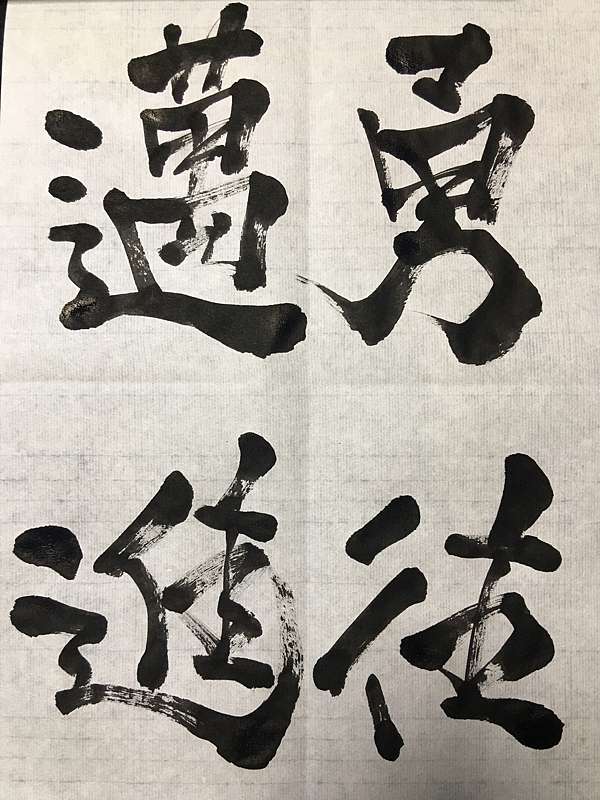 勇往
邁進